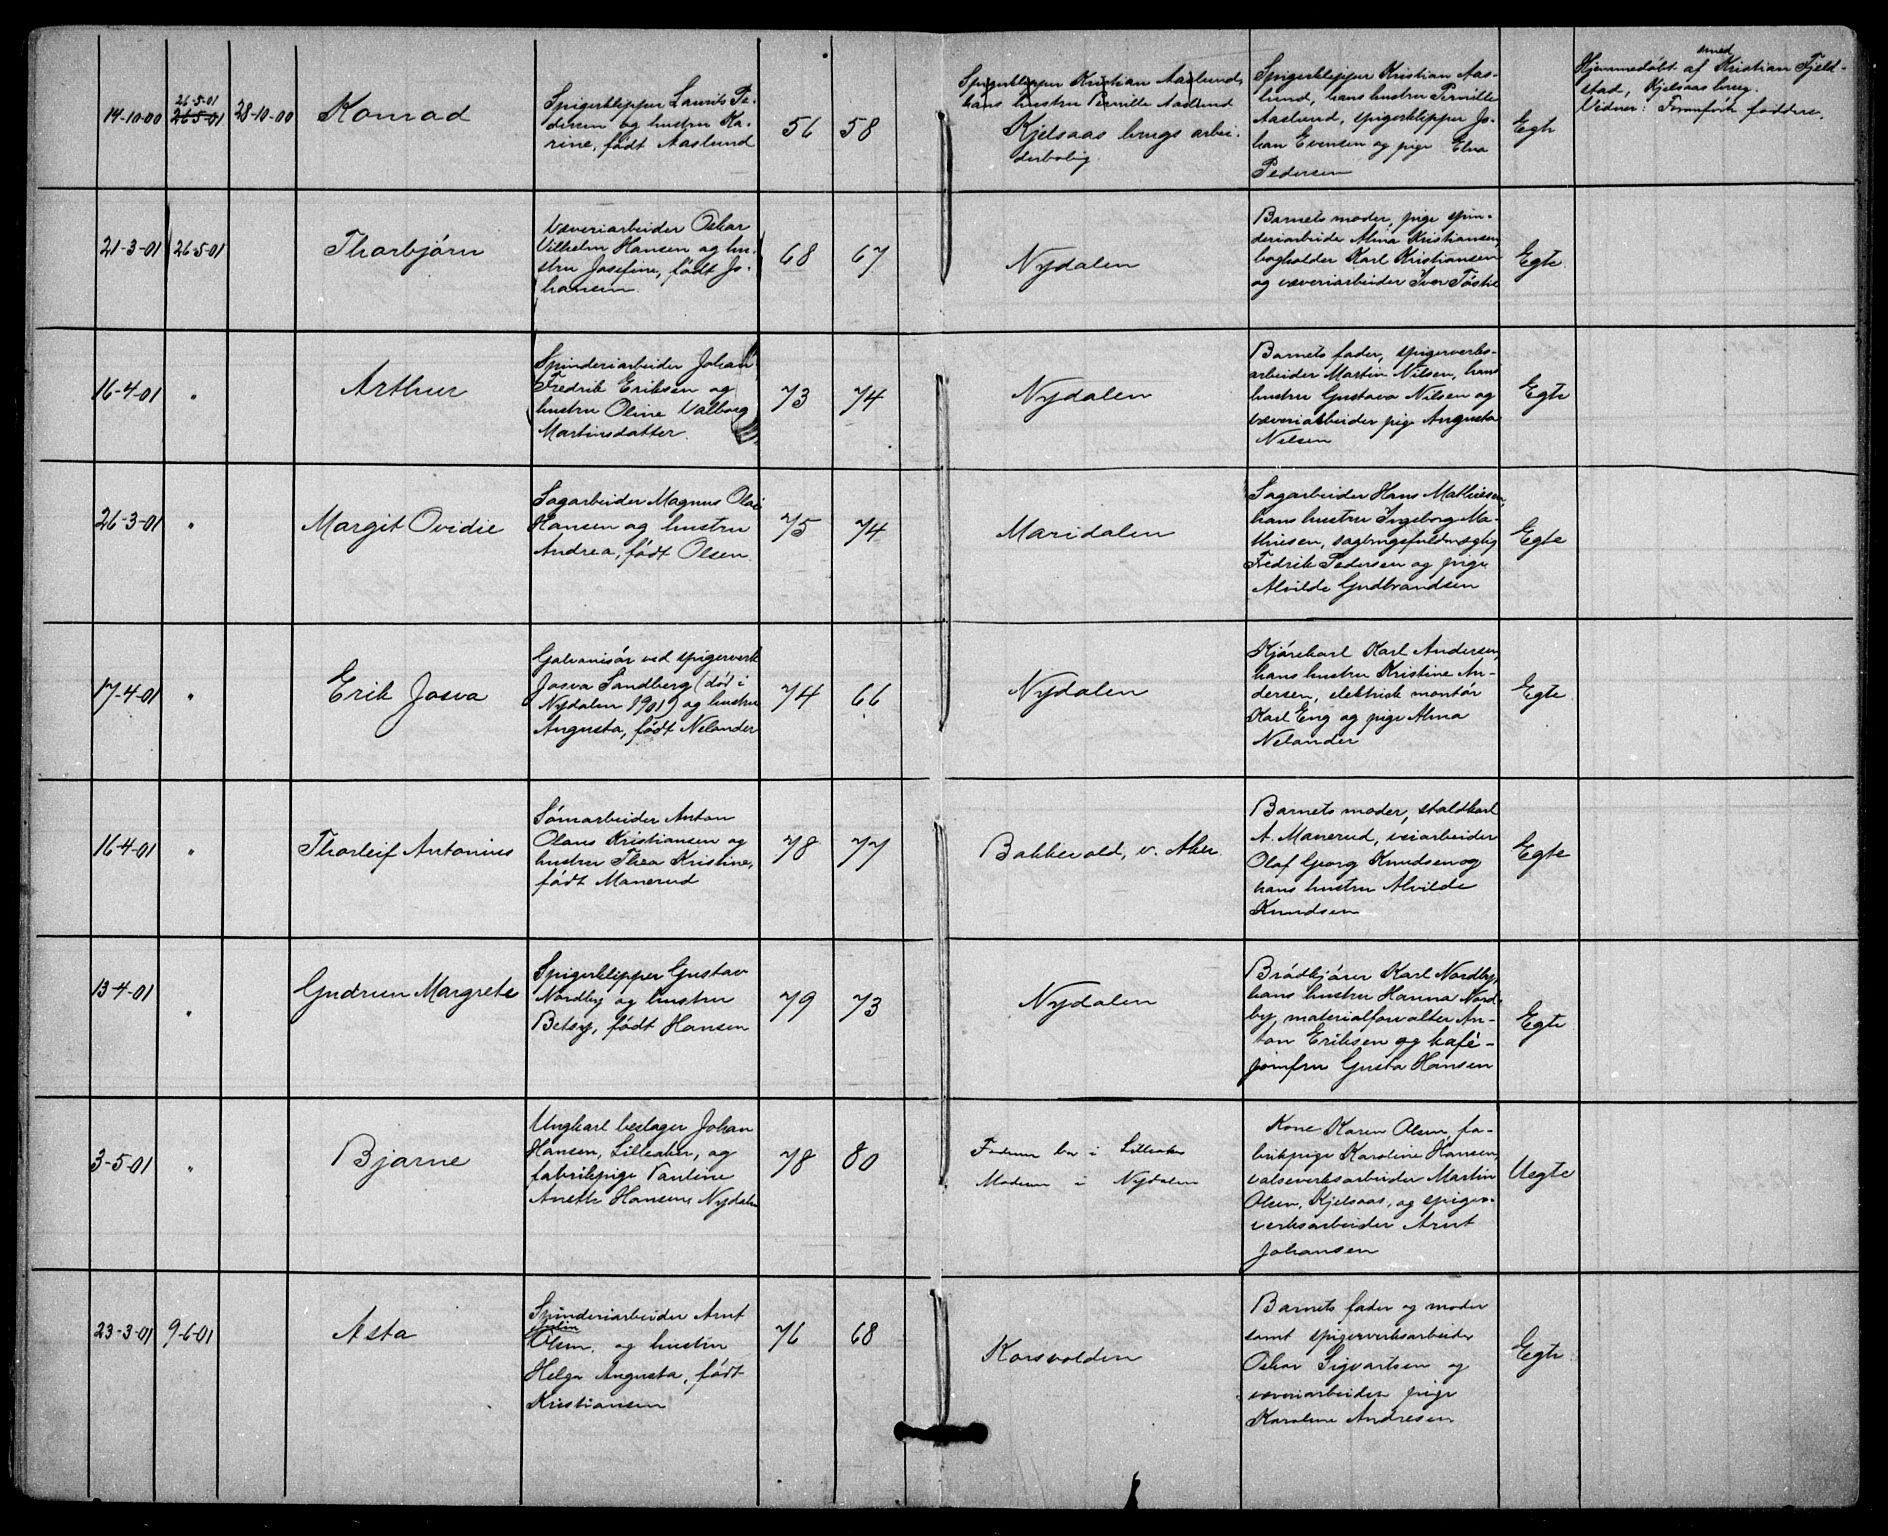 14-10-00
26-5-01
26-5-01
28-10-00
Konrad
Spigerklipper Laurits Pe-
dersen og hustru Ka-
rine, født Aaslund
56
58
Spigerklipper Kristian Aaslund,
hans hustru Pernille Aaslund
Kjelsaas brugs arbei-
derbolig.
Spigerklipper Kristian Aas-
lund, hans hustru Pernille
Aaslund, spigerklipper Jo-
han Evensen og pige Elna
Pedersen
Egte
smed
Hjemmedøbt af Kristian Fjeld-
stad, Kjelsaas brug.
Vidner: fadderne.
21-3-01
26-5-01
Thorbjørn
Væveriarbeider Oskar
Vilhelm Hansen og hu-
stru Josefine, født Jo-
hansen.
68
67
Nydalen
Barnets moder, pige spin-
deriarbeide Alma Kristiansen,
bogholder Karl Kristiansen
og væveriarbeider Iver Tøstie
Egte
16-4-01
"
Arthur
Spinderiarbeider Johan
Fredrik Eriksen og
hustru Oline Valborg
Martinsdatter.
73
74
Nydalen
Barnets fader, spigerverks-
arbeider Martin Nilsen, hans
hustru Gustava Nilsen og
væveriarbeider pige Augusta
Nilsen
Egte
26-3-01
"
Margit Ovidie
Sagarbeider Magnus Olai
Hansen og hustru
Andrea, født Olsen.
75
74
Maridalen
Sagarbeider Hans Mathiesen,
hans hustru Ingeborg Ma-
thiesen, sagbrugsfuldmægtig
Fredrik Pedersen og pige
Alvilde Gudbrandsen
Egte
17-4-01
"
Erik Josva
Galvanisør ved spigerverk
Josva Sandberg (død i
Nydalen 1901) og hustru
Augusta, født Nelander
74
66
Nydalen
Kjørekarl Karl Andersen,
hans hustru Kristine An-
dersen, elektrisk montør
Karl Eng og pige Alma
Nelander
Egte
16-4-01
"
Thorleif Antonius
Sømarbeider Anton
Olaus Kristiansen og
hustru Thea Kristine,
født Manerud
78
77
Bakkevold, v. Aker.
Barnets moder, staldkarl
A. Manerud, veiarbeider
Olaf Georg Knudsen og
hans hustru Alvilde
Knudsen
Egte
13-4-01
"
Gudrun Margrete
Spigerklipper Gustav
Nordby og hustru
Betsy, født Hansen
79
73
Nydalen
Brødkjører Karl Nordby,
hans hustru Hanna Nord-
by, materialforvalter An-
ton Eriksen og kafé-
jomfru Gusta Hansen
Egte
3-5-01
"
Bjarne
Ungkarl beslager Johan
Hansen, Lilleaker, og
fabrikpige Pauline
Anethe Hansen, Nydalen
78
80
Faderen bor i Lilleaker
Moderen i Nydalen
Kone Karen Olsen, fa-
brikpige Karoline Hansen,
valseverksarbeider Martin
Olsen, Kjelsaas, og spiger-
verksarbeider Arnt
Johansen
Uegte
23-3-01
9-6-01
Asta
Spinderiarbeider Arnt
Olsen, og hustru
Helga Augusta, født
Kristiansen
76
68
Korsvolden
Barnets fader og moder
samt spigerverksarbeider
Oskar Sigvartsen og
væveriarbeider pige
Karoline Andresen
Egte